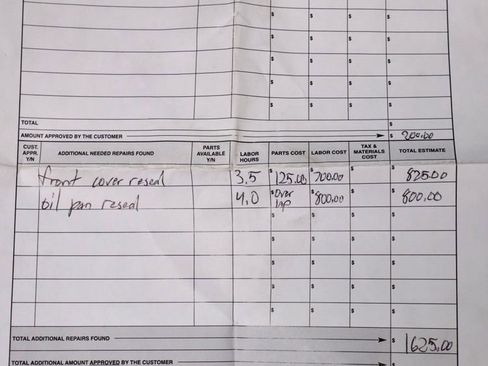 $ $ $ $ $
$ $ $ $ $
$ $ $ $ $
$ $ $ $ $
$ $ $ $ $
TOTAL $
AMOUNT APPROVED BY THE CUSTOMER $ 200.00
CUST. APPR. Y/N ADDITIONAL NEEDED REPAIRS FOUND PARTS AVAILABLE Y/N LABOR HOURS PARTS COST LABOR COST TAX & MATERIALS COST TOTAL ESTIMATE
front cover reseal 3.5 $125.00 $700.00 $ $ 825.00
oil pan reseal 4.0 $over lap $800.00 $ $ 800.00
$ $ $ $
$ $ $ $
$ $ $ $
$ $ $ $
$ $ $ $
TOTAL ADDITIONAL REPAIRS FOUND $ 1625.00
TOTAL ADDITIONAL AMOUNT APPROVED BY THE CUSTOMER $